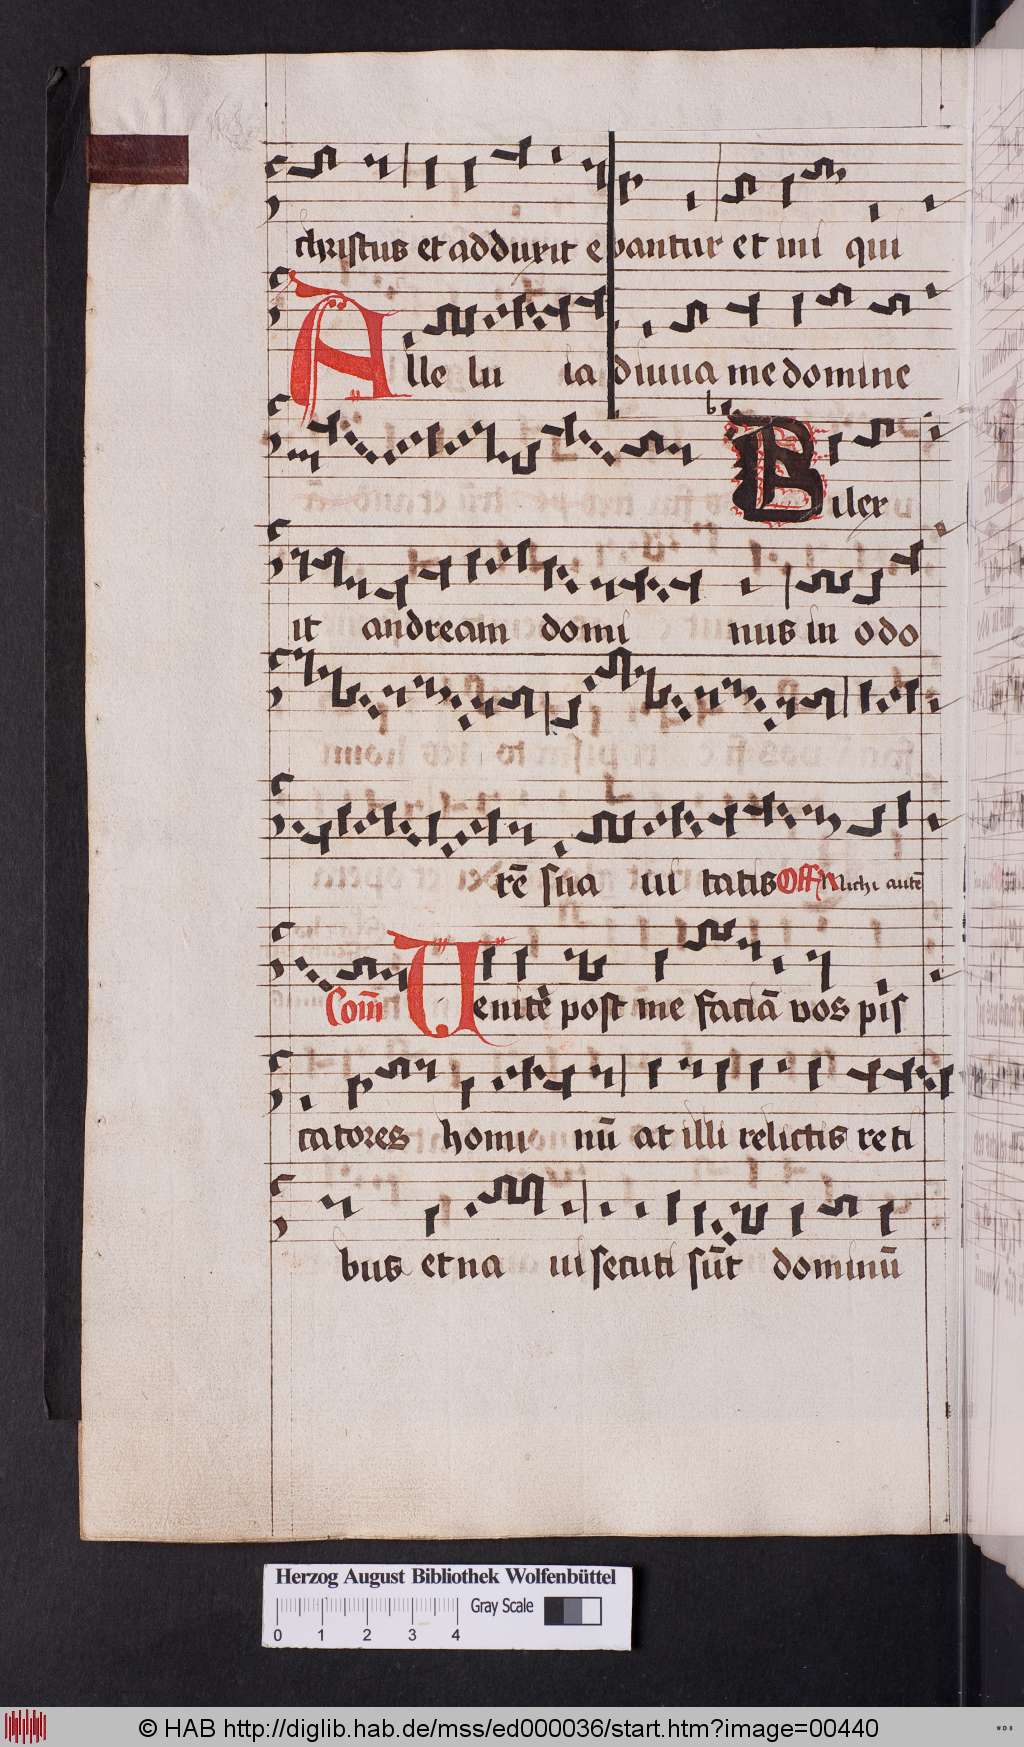 christus et adduxit e vantur et mi qui
Alle lu ia diuua me domine
Bilex
it andream domi nus in odo
rē sua ui tatis Off Michi autē
Com̄ Uenite post me faciā vos pis
catores homi nū at illi relictis reti
bus et na ui secuti sūt dominū
Herzog August Bibliothek Wolfenbüttel
Gray Scale
0 1 2 3 4
© HAB http://diglib.hab.de/mss/ed000036/start.htm?image=00440